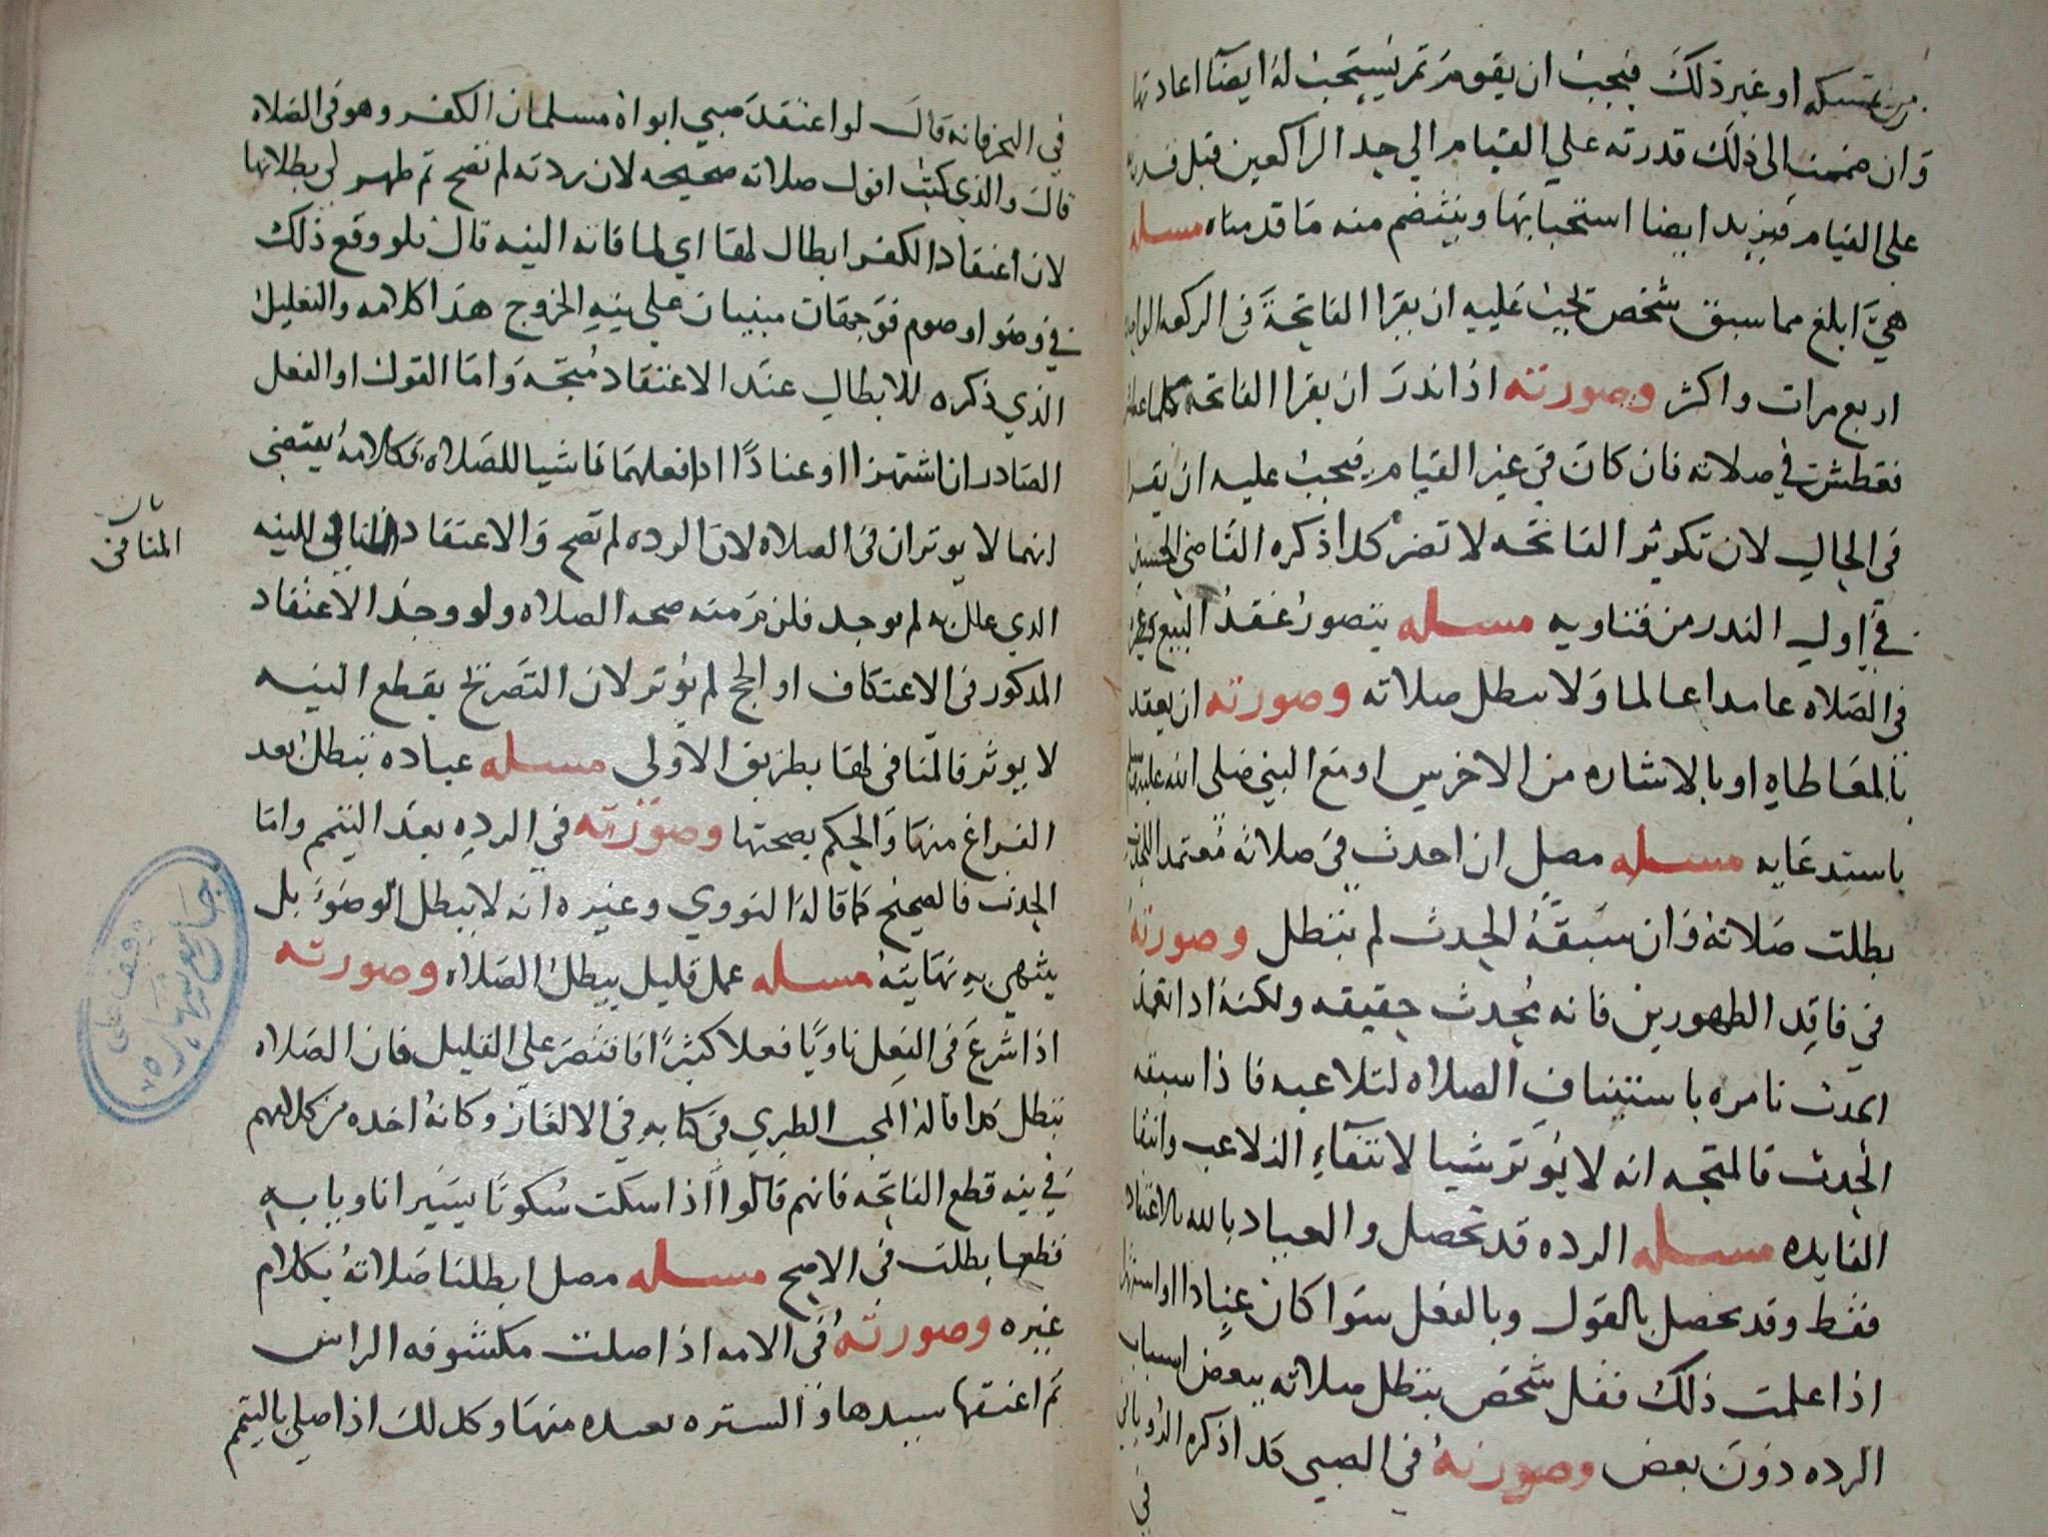 او غير ذلك فيجب ان يقوم ثم يستحب له ايضا اعادتها
وان ضممت الى ذلك قدرته علي القيام الي حد الراكعين قبل قدرته
على القيام فيزيد ايضا استحبابها وينتضم منه ما قدمناه مسله
هي ابلغ مما سبق شخص يجب عليه ان يقرا الفاتحة في الركعه الواحده
اربع مرات واكثر وصورته اذا ندر ان يقرا الفاتحه كلما عطس
فعطش في صلاته فان كان في غير القيام فيجب عليه ان يقرا
في الحال لان تكرير الفاتحه لا تضر كذا ذكره القاضي الحسين
في اول الندر من فتاويه مسله يتصور عقد البيع
في الصلاه عامدا عالما ولا تبطل صلاته وصورته ان يعقد
بالمعاطاه او بالاشاره من الاخرس او مع النبي صلى الله عليه وسلم
باستدعايه مسله مصل ان احدث في صلاته متعمدا
بطلت صلاته وان سبقه الحدث لم تبطل وصورته
في فاقد الطهورين فانه محدث حقيقه ولكنه اذا تعمد
الحدث نامره باستيناف الصلاه لتلاعبه فاذا سبقه
الحدث فالمتجه انه لا يؤثر شيا لانتفاء التلاعب وانتفا
الفايده مسله الرده قد تحصل والعياذ بالله بالاعتقاد
فقط وقد تحصل بالقول وبالفعل سوا كان عنادا او استهزا
اذا علمت ذلك فقل شخص تبطل صلاته ببعض اسباب
الرده دون بعض وصورته في الصبي كدا ذكره الروياني
في
في البحر فانه قال لو اعتقد صبي ابواه مسلمان الكفر وهو في الصلاه
قال والذي كنت اقول صلاته صحيحه لان ردته لم تصح ثم ظهر لي بطلانها
لان اعتقاد الكفر ابطال لها اي لمنافاته النيه قال فلو وقع ذلك
في وضو او صوم فوجهان مبنيان علي نيه الخروج هذا كلامه والتعليل
الذي ذكره للابطال عند الاعتقاد متجه واما القول او الفعل
الصادران استهزا او عنادا اذا فعلهما ناشيا للصلاه فكلامه يقتضي
انهما لا يوتران في الصلاه لان الرده لم تصح والاعتقاد المنافي للنيه
بيان
المنافي
الدي علل به لم يوجد فلزم منه صحه الصلاه ولو وجد الاعتقاد
المدكور في الاعتكاف او الحج لم يؤتر لان التصريح بقطع النيه
لا يوثر فالمنافي لها بطريق الاولى مسله عباده تبطل بعد
الفراغ منها والحكم بصحتها وصورته في الرده بعد التيمم واما
الحدث فالصحيح كما قاله النووي وغيره انه لا يبطل الوضوء بل
ينتهي به نهايته مسله عمل قليل يبطل الصلاه وصورته
اذا شرع في الفعل ناويا فعلا كثيرا فاقتصر على القليل فان الصلاه
تبطل كدا قاله المحب الطبري في كتابه في الالغاز وكانه اخده من كلامهم
في نيه قطع الفاتحه فانهم قالوا اذا سكت سكوتا يسيرا ناويا به
قطعها بطلت في الاصح مسله مصل ابطلنا صلاته بكلام
غيره وصورته في الامه اذا صلت مكشوفه الراس
ثم اعتقها سيدها والستره بعيده منها وكدلك اذا صلي بالتيمم